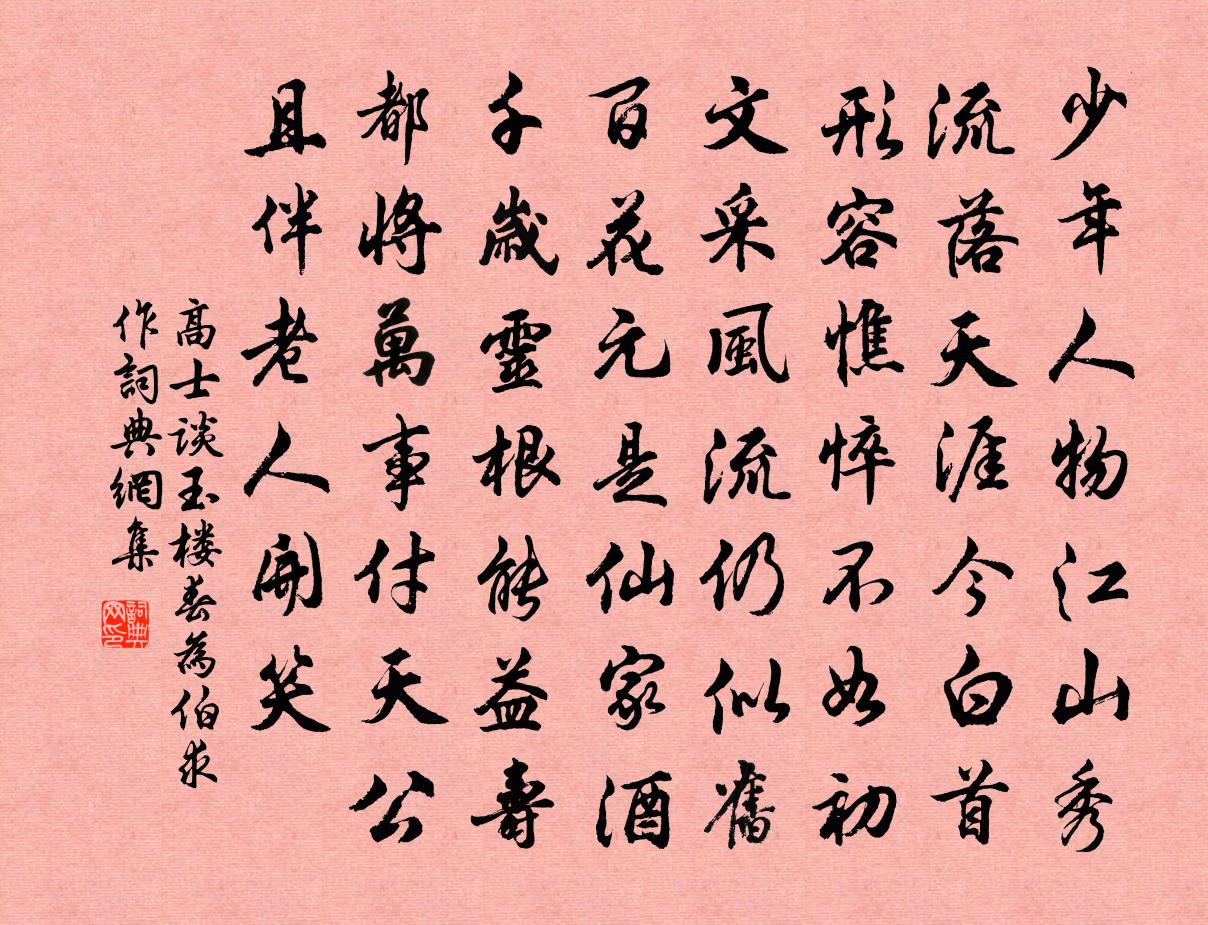 少年人物江山秀
流落天涯今白首
形容憔悴不如初
文采風流仍似舊
百花元是仙家酒
千歲靈根能益壽
都將萬事付天公
且伴老人開笑
高士談玉楼春為伯求
作詞典網集
詞典网印